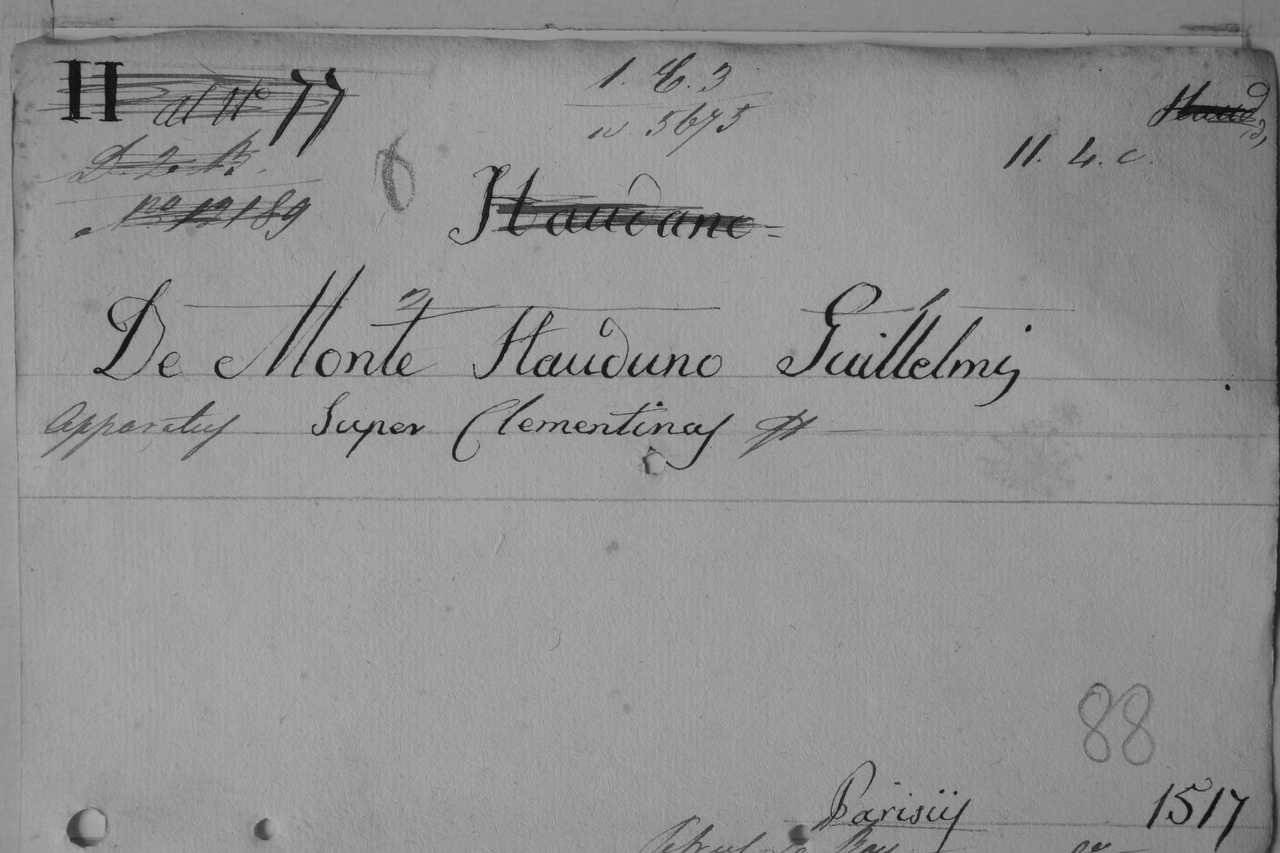 H al N° 77
1. E. 3
n 5673
Haud
11. 4. c.
D. 2. B.
n° 12189
6
Haudano=
De Monte Hauduno Guillelmi
Apparatus Super Clementinas
88
Parisiis 1517